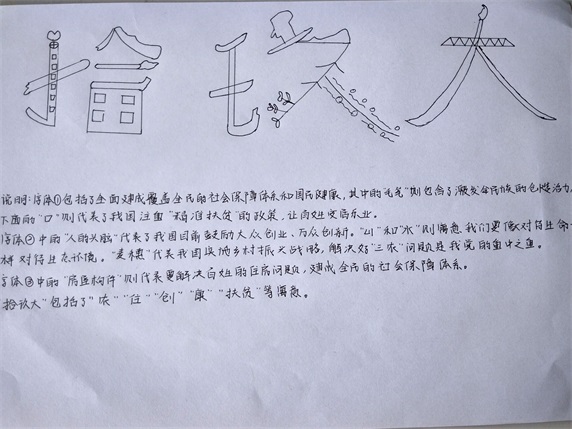 拾玖大
说明:字体①包括了全面建成覆盖全民的社会保障体系和国民健康,其中的"气"则包含了激发全民族的创造活力,
下面的"口"则代表了我国注重"精准扶贫"的政策,让百姓安居乐业。
字体②中的"人的头脑"代表了我国目前鼓励大众创业、万众创新。"山"和"水"则寓意我们要像对待生命一
样对待生态环境。"麦穗"代表我国实施乡村振兴战略,解决好"三农"问题是我党的重中之重。
字体③中的"房屋构件"则代表要解决百姓的住房问题,建成全民的社会保障体系。
拾玖大"包括了"农""住""创""康""扶贫"等寓意。